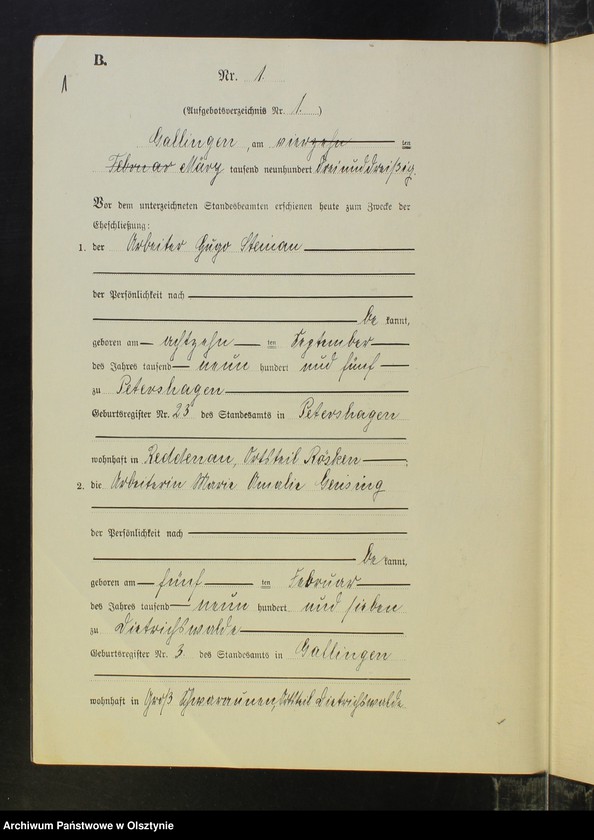 B.
1
Nr. 1.
(Aufgebotsverzeichnis Nr. 1.)
Gallingen, am vierzehn ten
Februar März tausend neunhundert dreiunddreißig.
Vor dem unterzeichneten Standesbeamten erschienen heute zum Zwecke der
Eheschließung:
1. der Arbeiter Hugo Steinau
der Persönlichkeit nach
be kannt,
geboren am achtzehn ten September
des Jahres tausend neun hundert und fünf
zu Petershagen
Geburtsregister Nr. 23 des Standesamts in Petershagen
wohnhaft in Reddenau, Ortsteil Rösken ;
2. die Arbeiterin Marie Amalie Gensing
der Persönlichkeit nach
be kannt,
geboren am fünf ten Februar
des Jahres tausend neun hundert und sieben
zu Dietrichswalde
Geburtsregister Nr. 3. des Standesamts in Gallingen
wohnhaft in Groß Schwaraunen, Ortsteil Dietrichswalde
Archiwum Państwowe w Olsztynie